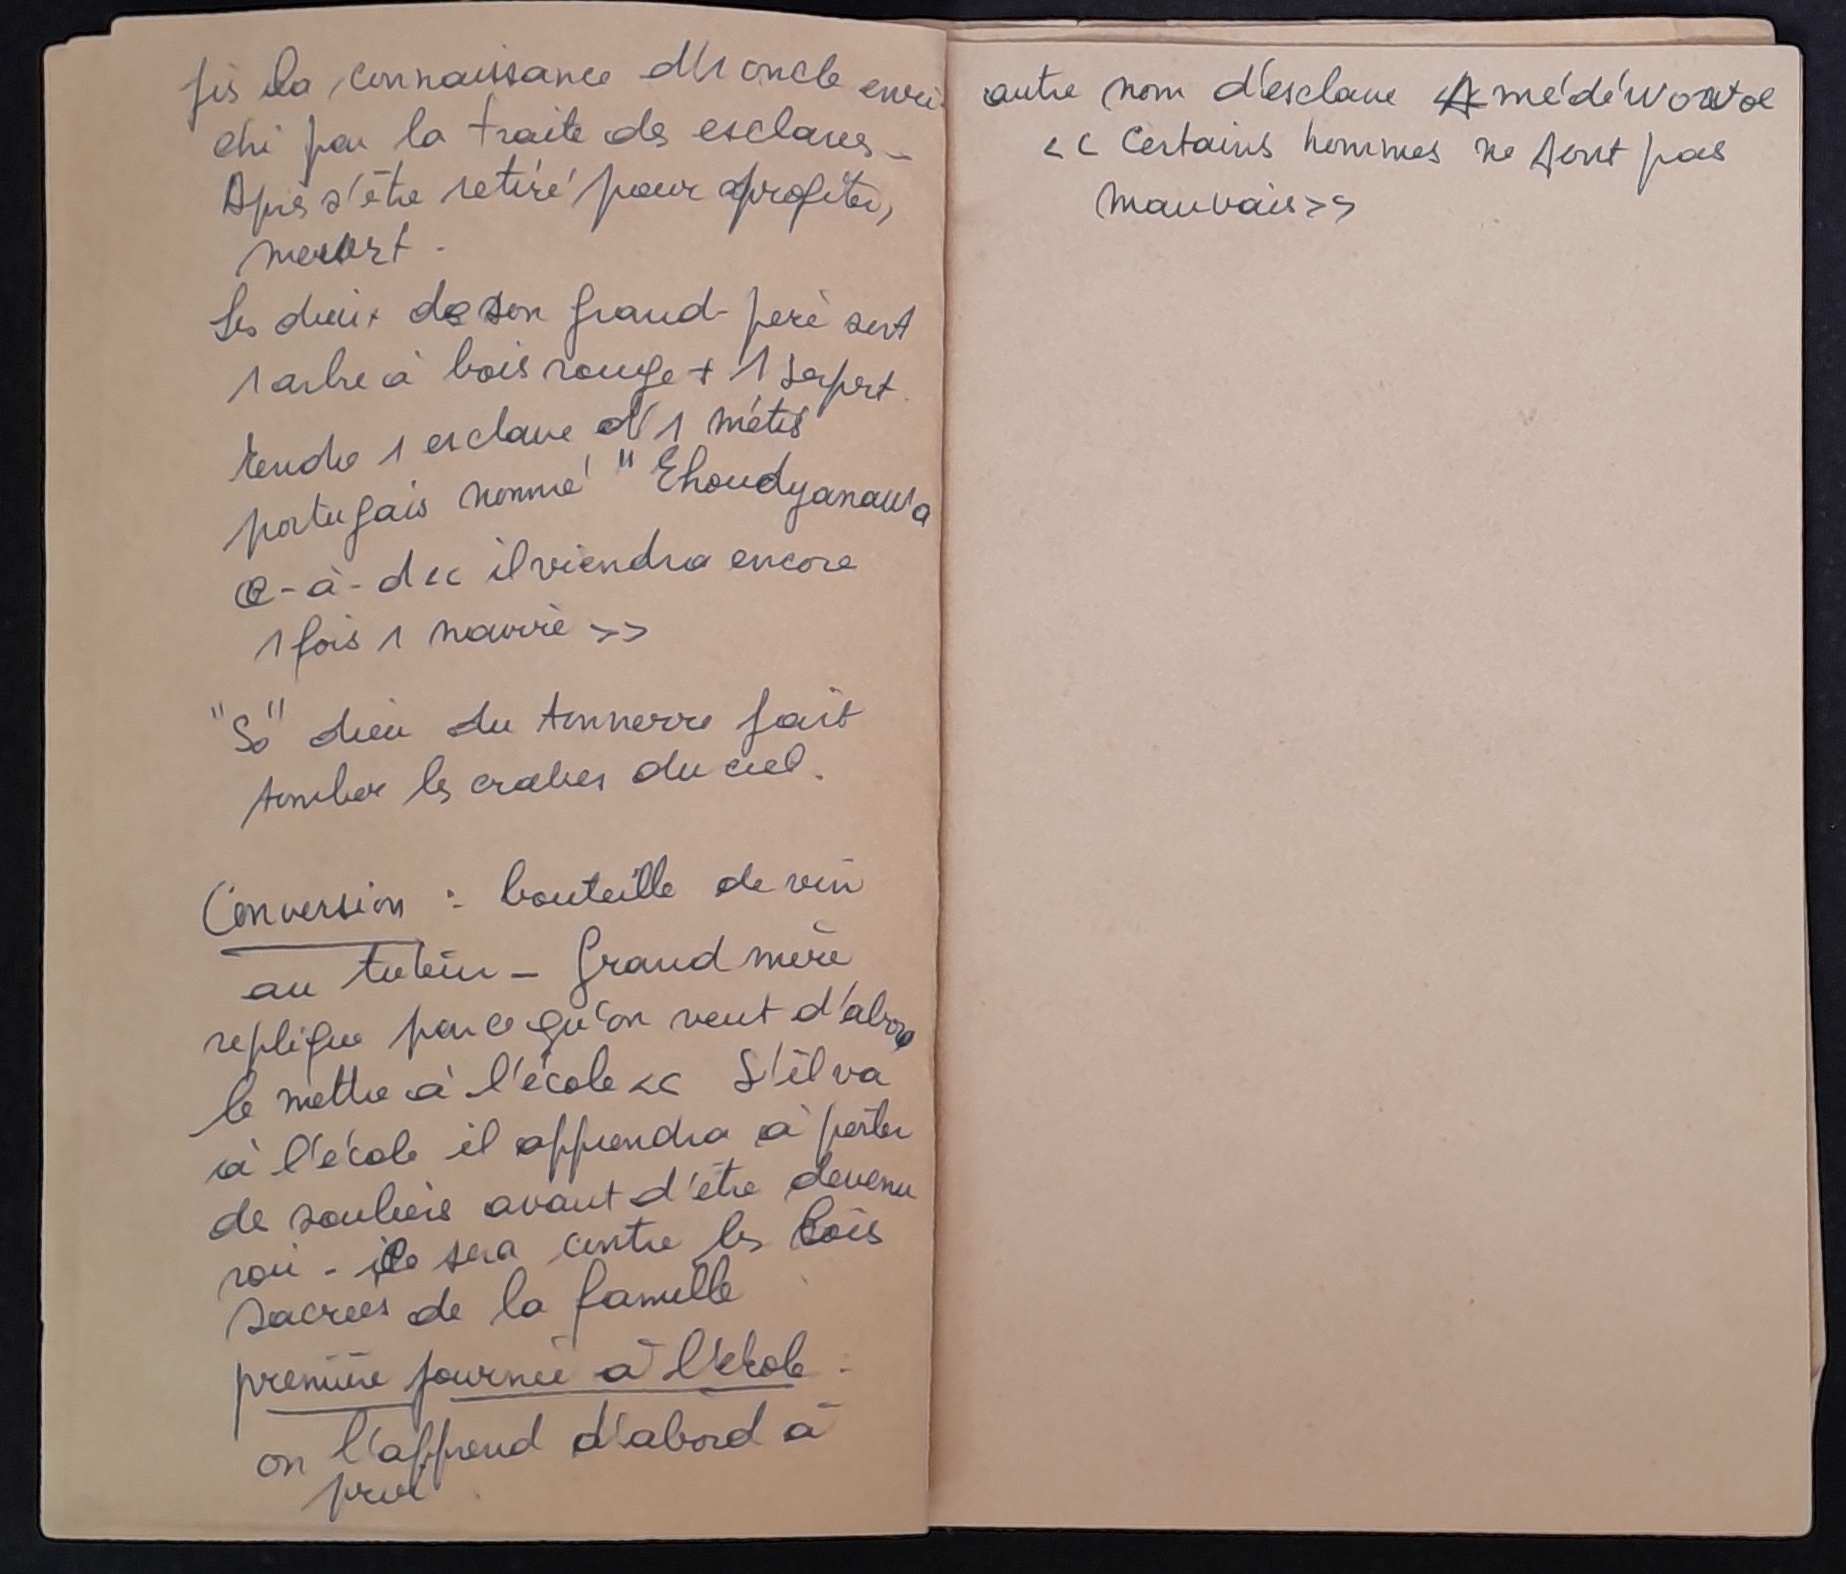 fis la connaissance d'1 oncle enri-
chi par la traite des esclaves -
Après s'être retiré pour profiter,
meurt.
Les dieux de son grand-père sont
1 arbre à bois rouge + 1 serpent.
tendre 1 esclave d'1 métis
portugais nommé "Ehoudyanawa
c-à-d << il viendra encore
1 fois 1 navire >>
"So" dieu du tonnerre fait
tomber les crabes du ciel.
Conversion : bouteille de vin
au tuteur - Grand mère
replique parce qu'on veut d'abord
le mettre à l'école << S'il va
à l'école il apprendra à porter
de souliers avant d'être devenu
roi - ce sera contre les lois
sacrées de la famille
première journée à l'école.
on l'apprend d'abord à
prier.
autre nom d'esclave Amédéwowoe
<< Certains hommes ne sont pas
mauvais >>